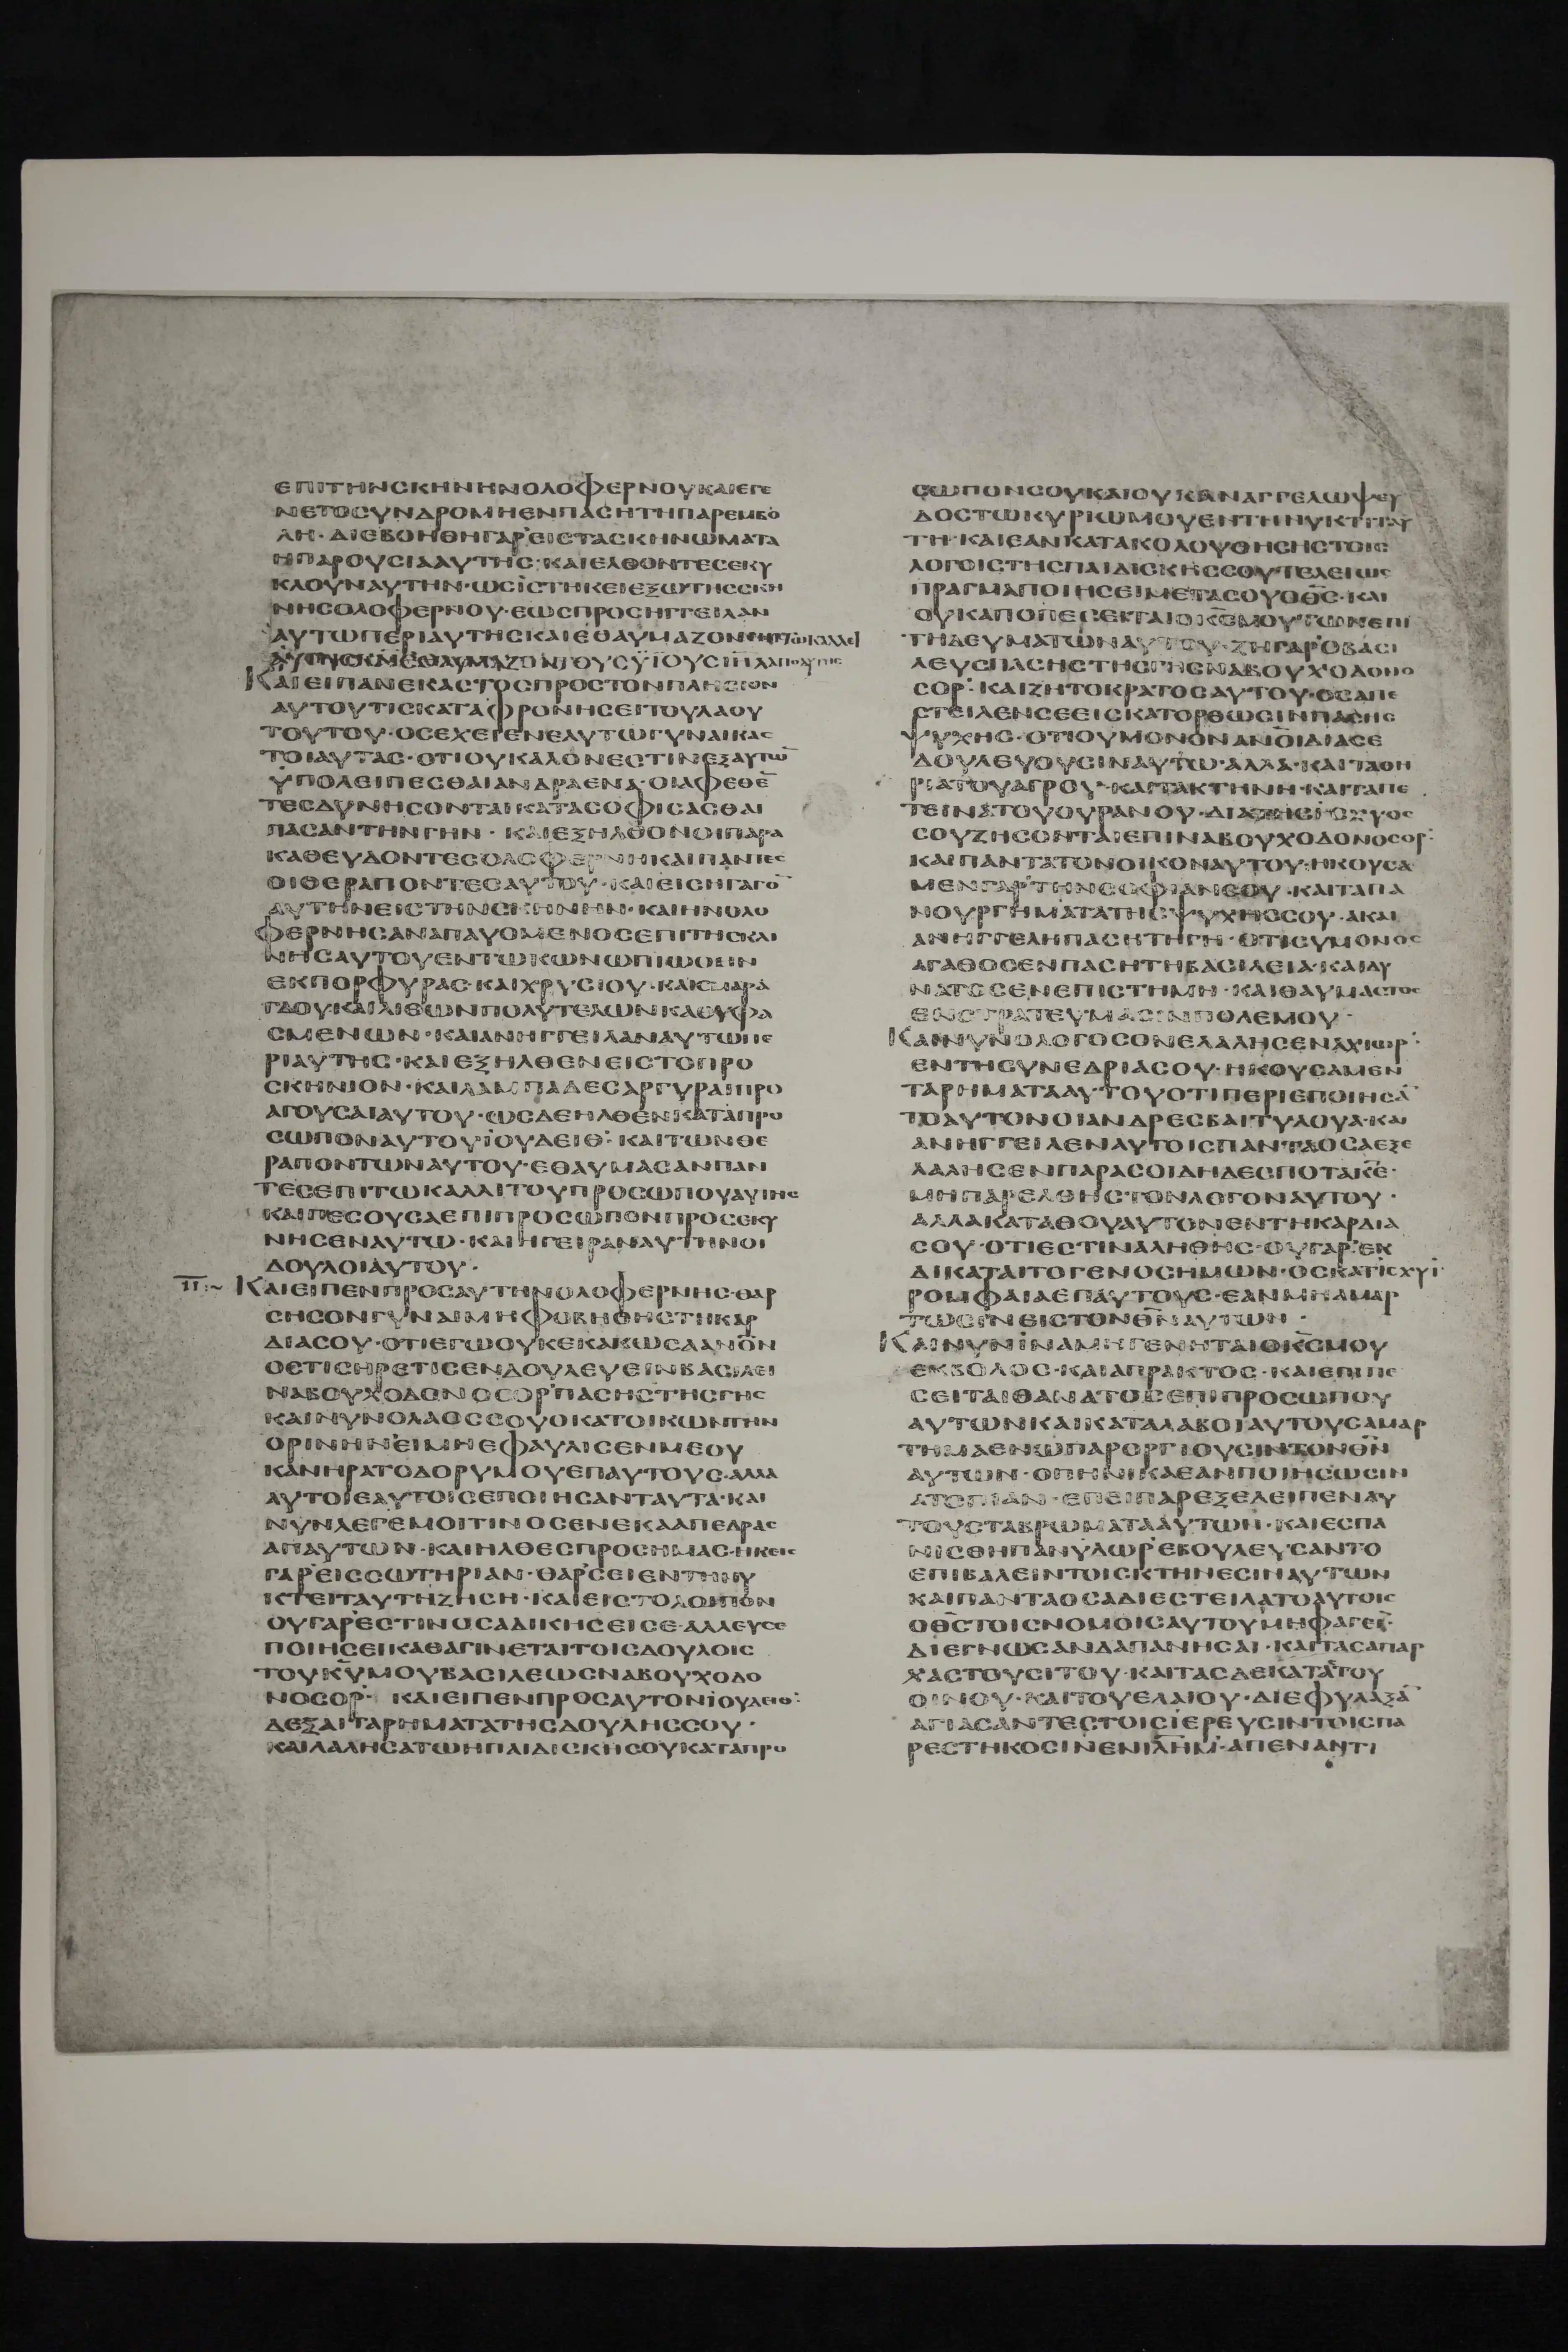 ΕΠΙΤΗΝϹΚΗΝΗΝΟΛΟΦΕΡΝΟΥΚΑΙΕΓΕ
ΝΕΤΟϹΥΝΔΡΟΜΗΕΝΠΑϹΗΤΗΠΑΡΕΜΒΟ
ΛΗ·ΔΙΕΒΟΗΘΗΓΑΡΕΙϹΤΑϹΚΗΝΩΜΑΤΑ
ΗΠΑΡΟΥϹΙΑΑΥΤΗϹ:ΚΑΙΕΛΘΟΝΤΕϹΕΚΥ
ΚΛΟΥΝΑΥΤΗΝ·ΩϹΪϹΤΗΚΕΙΕΞΩΤΗϹϹΚΗ
ΝΗϹΟΛΟΦΕΡΝΟΥ·ΕΩϹΠΡΟϹΗΓΓΕΙΛΑΝ
ΑΥΤΩΠΕΡΙΑΥΤΗϹΚΑΙΕΘΑΥΜΑΖΟΝ
ΕΘΑΥΜΑΖΟΝΤΟΥϹΫΙΟΥϹΙΗΛΑΠΟΑΥΤΗϹ
ΚΑΙΕΙΠΑΝΕΚΑϹΤΟϹΠΡΟϹΤΟΝΠΛΗϹΙΟΝ
ΑΥΤΟΥΤΙϹΚΑΤΑΦΡΟΝΗϹΕΙΤΟΥΛΑΟΥ
ΤΟΥΤΟΥ·ΟϹΕΧΕΙΕΝΕΑΥΤΩΓΥΝΑΙΚΑϹ
ΤΟΙΑΥΤΑϹ·ΟΤΙΟΥΚΑΛΟΝΕϹΤΙΝΕΞΑΥΤΩ̅
ΫΠΟΛΕΙΠΕϹΘΑΙΑΝΔΡΑΕΝΑ·ΟΙΑΦΕΘΕ̅
ΤΕϹΔΥΝΗϹΟΝΤΑΙΚΑΤΑϹΟΦΙϹΑϹΘΑΙ
ΠΑϹΑΝΤΗΝΓΗΝ·ΚΑΙΕΞΗΛΘΟΝΟΙΠΑΡΑ
ΚΑΘΕΥΔΟΝΤΕϹΟΛΟΦΕΡΝΗΚΑΙΠΑΝΤΕϹ
ΟΙΘΕΡΑΠΟΝΤΕϹΑΥΤΟΥ·ΚΑΙΕΙϹΗΓΑΓΟ̅
ΑΥΤΗΝΕΙϹΤΗΝϹΚΗΝΗΝ·ΚΑΙΗΝΟΛΟ
ΦΕΡΝΗϹΑΝΑΠΑΥΟΜΕΝΟϹΕΠΙΤΗϹΚΛΙ
ΝΗϹΑΥΤΟΥΕΝΤΩΚΩΝΩΠΙΩΟΗΝ
ΕΚΠΟΡΦΥΡΑϹ·ΚΑΙΧΡΥϹΙΟΥ·ΚΑΙϹΜΑΡΑ
ΓΔΟΥ·ΚΑΙΛΙΘΩΝΠΟΛΥΤΕΛΩΝΚΑΘΥΦΑ
ϹΜΕΝΩΝ·ΚΑΙΑΝΗΓΓΕΙΛΑΝΑΥΤΩΠΕ
ΡΙΑΥΤΗϹ·ΚΑΙΕΞΗΛΘΕΝΕΙϹΤΟΠΡΟ
ϹΚΗΝΙΟΝ·ΚΑΙΛΑΜΠΑΔΕϹΑΡΓΥΡΑΙΠΡΟ
ΑΓΟΥϹΑΙΑΥΤΟΥ·ΩϹΔΕΗΛΘΕΝΚΑΤΑΠΡΟ
ϹΩΠΟΝΑΥΤΟΥΪΟΥΔΕΙΘ:ΚΑΙΤΩΝΘΕ
ΡΑΠΟΝΤΩΝΑΥΤΟΥ·ΕΘΑΥΜΑϹΑΝΠΑΝ
ΤΕϹΕΠΙΤΩΚΑΛΛΙΤΟΥΠΡΟϹΩΠΟΥΑΥΤΗϹ
ΚΑΙΠΕϹΟΥϹΑΕΠΙΠΡΟϹΩΠΟΝΠΡΟϹΕΚΥ
ΝΗϹΕΝΑΥΤΩ·ΚΑΙΗΓΕΙΡΑΝΑΥΤΗΝΟΙ
ΔΟΥΛΟΙΑΥΤΟΥ·
ΚΑΙΕΙΠΕΝΠΡΟϹΑΥΤΗΝΟΛΟΦΕΡΝΗϹ·ΘΑΡ
ϹΗϹΟΝΓΥΝΑΙΜΗΦΟΒΗΘΗϹΤΗΚΑΡ
ΔΙΑϹΟΥ·ΟΤΙΕΓΩΟΥΚΕΚΑΚΩϹΑΑΝΟ̅Ν
ΟϹΤΙϹΗΡΕΤΙϹΕΝΔΟΥΛΕΥΕΙΝΒΑϹΙΛΕΙ
ΝΑΒΟΥΧΟΔΟΝΟϹΟΡ'ΠΑϹΗϹΤΗϹΓΗϹ
ΚΑΙΝΥΝΟΛΑΟϹϹΟΥΟΚΑΤΟΙΚΩΝΤΗΝ
ΟΡΙΝΗΝΕΙΜΗΕΦΑΥΛΙϹΕΝΜΕΟΥ
ΚΑΝΗΡΑΤΟΔΟΡΥΜΟΥΕΠΑΥΤΟΥϹ·ΑΛΛΑ
ΑΥΤΟΙΕΑΥΤΟΙϹΕΠΟΙΗϹΑΝΤΑΥΤΑ·ΚΑΙ
ΝΥΝΛΕΓΕΜΟΙΤΙΝΟϹΕΝΕΚΑΑΠΕΔΡΑϹ
ΑΠΑΥΤΩΝ·ΚΑΙΗΛΘΕϹΠΡΟϹΗΜΑϹ·ΗΚΕΙϹ
ΓΑΡΕΙϹϹΩΤΗΡΙΑΝ·ΘΑΡϹΕΙΕΝΤΗΝΥ
ΚΤΕΙΤΑΥΤΗΖΗϹΗ·ΚΑΙΕΙϹΤΟΛΟΙΠΟΝ
ΟΥΓΑΡΕϹΤΙΝΟϹΑΔΙΚΗϹΕΙϹΕ·ΑΛΛΕΥϹΕ
ΠΟΙΗϹΕΙΚΑΘΑΓΙΝΕΤΑΙΤΟΙϹΔΟΥΛΟΙϹ
ΤΟΥΚ̅Υ̅ΜΟΥΒΑϹΙΛΕΩϹΝΑΒΟΥΧΟΔΟ
ΝΟϹΟΡ·ΚΑΙΕΙΠΕΝΠΡΟϹΑΥΤΟΝΪΟΥΔΕΙΘ:
ΔΕΞΑΙΤΑΡΗΜΑΤΑΤΗϹΔΟΥΛΗϹϹΟΥ·
ΚΑΙΛΑΛΗϹΑΤΩΗΠΑΙΔΙϹΚΗϹΟΥΚΑΤΑΠΡΟ
ϹΩΠΟΝϹΟΥΚΑΙΟΥΚΑΝΑΓΓΕΛΩΨΕΥ
ΔΟϹΤΩΚΥΡΙΩΜΟΥΕΝΤΗΝΥΚΤΙΤΑΥ
ΤΗ·ΚΑΙΕΑΝΚΑΤΑΚΟΛΟΥΘΗϹΗϹΤΟΙϹ
ΛΟΓΟΙϹΤΗϹΠΑΙΔΙϹΚΗϹϹΟΥΤΕΛΕΙΩϹ
ΠΡΑΓΜΑΠΟΙΗϹΕΙΜΕΤΑϹΟΥΟΘ̅Ϲ̅·ΚΑΙ
ΟΥΚΑΠΟΠΕϹΕΙΤΑΙΟΚ̅Ϲ̅ΜΟΥΤΩΝΕΠΙ
ΤΗΔΕΥΜΑΤΩΝΑΥΤΟΥ·ΖΗΓΑΡΟΒΑϹΙ
ΛΕΥϹΠΑϹΗϹΤΗϹΓΗϹΝΑΒΟΥΧΟΔΟΝΟ
ϹΟΡ:ΚΑΙΖΗΤΟΚΡΑΤΟϹΑΥΤΟΥ·ΟϹΑΠΕ
ϹΤΕΙΛΕΝϹΕΕΙϹΚΑΤΟΡΘΩϹΙΝΠΑϹΗϹ
ΨΥΧΗϹ·ΟΤΙΟΥΜΟΝΟΝΑΝΟ̅ΙΔΙΑϹΕ
ΔΟΥΛΕΥΟΥϹΙΝΑΥΤΩ·ΑΛΛΑ·ΚΑΙΤΑΘΗ
ΡΙΑΤΟΥΑΓΡΟΥ·ΚΑΙΤΑΚΤΗΝΗ·ΚΑΙΤΑΠΕ
ΤΕΙΝΑΤΟΥΟΥΡΑΝΟΥ·ΔΙΑΤΗϹΪϹΧΥΟϹ
ϹΟΥΖΗϹΟΝΤΑΙΕΠΙΝΑΒΟΥΧΟΔΟΝΟϹΟΡ:
ΚΑΙΠΑΝΤΑΤΟΝΟΙΚΟΝΑΥΤΟΥ:ΗΚΟΥϹΑ
ΜΕΝΓΑΡΤΗΝϹΟΦΙΑΝϹΟΥ·ΚΑΙΤΑΠΑ
ΝΟΥΡΓΗΜΑΤΑΤΗϹΨΥΧΗϹϹΟΥ·ΑΚΑΙ
ΑΝΗΓΓΕΛΗΠΑϹΗΤΗΓΗ·ΟΤΙϹΥΜΟΝΟϹ
ΑΓΑΘΟϹΕΝΠΑϹΗΤΗΒΑϹΙΛΕΙΑ·ΚΑΙΔΥ
ΝΑΤΟϹΕΝΕΠΙϹΤΗΜΗ·ΚΑΙΘΑΥΜΑϹΤΟϹ
ΕΝϹΤΡΑΤΕΥΜΑϹΙΝΠΟΛΕΜΟΥ·
ΚΑΙΝΥΝΟΛΟΓΟϹΟΝΕΛΑΛΗϹΕΝΑΧΙΩΡ:
ΕΝΤΗϹΥΝΕΔΡΙΑϹΟΥ·ΗΚΟΥϹΑΜΕΝ
ΤΑΡΗΜΑΤΑΑΥΤΟΥΟΤΙΠΕΡΙΕΠΟΙΗϹΑ̅
ΤΟΑΥΤΟΝΟΙΑΝΔΡΕϹΒΑΙΤΥΛΟΥΑ·ΚΑΙ
ΑΝΗΓΓΕΙΛΕΝΑΥΤΟΙϹΠΑΝΤΑΟϹΑΕΞΕ
ΛΑΛΗϹΕΝΠΑΡΑϹΟΙΔΗΔΕϹΠΟΤΑΚ̅Ε̅·
ΜΗΠΑΡΕΛΘΗϹΤΟΝΛΟΓΟΝΑΥΤΟΥ·
ΑΛΛΑΚΑΤΑΘΟΥΑΥΤΟΝΕΝΤΗΚΑΡΔΙΑ
ϹΟΥ·ΟΤΙΕϹΤΙΝΑΛΗΘΗϹ·ΟΥΓΑΡΕΚ
ΔΙΚΑΤΑΙΤΟΓΕΝΟϹΗΜΩΝ·ΟϹΚΑΤΙϹΧΥΪ
ΡΟΜΦΑΙΑΕΠΑΥΤΟΥϹ·ΕΑΝΜΗΑΜΑΡ
ΤΩϹΙΝΕΙϹΤΟΝΘ̅Ν̅ΑΥΤΩΝ·
ΚΑΙΝΥΝΪΝΑΜΗΓΕΝΗΤΑΙΟΚ̅Ϲ̅ΜΟΥ
ΕΚΒΟΛΟϹ·ΚΑΙΑΠΡΑΚΤΟϹ·ΚΑΙΕΠΙΠΕ
ϹΕΙΤΑΙΘΑΝΑΤΟϹΕΠΙΠΡΟϹΩΠΟΥ
ΑΥΤΩΝΚΑΙΚΑΤΑΛΑΒΟΙΑΥΤΟΥϹΑΜΑΡ
ΤΗΜΑΕΝΩΠΑΡΟΡΓΙΟΥϹΙΝΤΟΝΘ̅Ν̅
ΑΥΤΩΝ·ΟΠΗΝΙΚΑΕΑΝΠΟΙΗϹΩϹΙΝ
ΑΤΟΠΙΑΝ·ΕΠΕΙΠΑΡΕΞΕΛΕΙΠΕΝΑΥ
ΤΟΥϹΤΑΒΡΩΜΑΤΑΑΥΤΩΝ·ΚΑΙΕϹΠΑ
ΝΙϹΘΗΠΑΝΥΔΩΡΕΒΟΥΛΕΥϹΑΝΤΟ
ΕΠΙΒΑΛΕΙΝΤΟΙϹΚΤΗΝΕϹΙΝΑΥΤΩΝ
ΚΑΙΠΑΝΤΑΟϹΑΔΙΕϹΤΕΙΛΑΤΟΑΥΤΟΙϹ
ΟΘ̅Ϲ̅ΤΟΙϹΝΟΜΟΙϹΑΥΤΟΥΜΗΦΑΓΕΙ̅·
ΔΙΕΓΝΩϹΑΝΔΑΠΑΝΗϹΑΙ·ΚΑΙΤΑϹΑΠΑΡ
ΧΑϹΤΟΥϹΙΤΟΥ·ΚΑΙΤΑϹΔΕΚΑΤΑϹΤΟΥ
ΟΙΝΟΥ·ΚΑΙΤΟΥΕΛΑΙΟΥ·ΔΙΕΦΥΛΑΞΑ̅
ΑΓΙΑϹΑΝΤΕϹΤΟΙϹΪΕΡΕΥϹΙΝΤΟΙϹΠΑ
ΡΕϹΤΗΚΟϹΙΝΕΝΙΛ̅Η̅Μ̅·ΑΠΕΝΑΝΤΙ